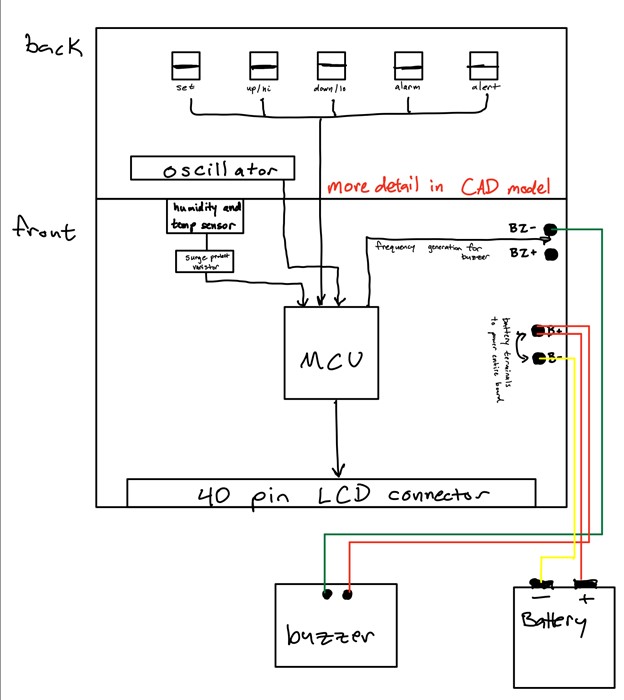 back
set
up/hi
down/lo
alarm
alert
oscillator
more detail in CAD model
front
humidity and
temp sensor
surge protect
BZ-
frequency generation for
buzzer
BZ+
battery terminals
to power entire board
B+
B-
MCU
40 pin LCD connector
buzzer
— +
Battery